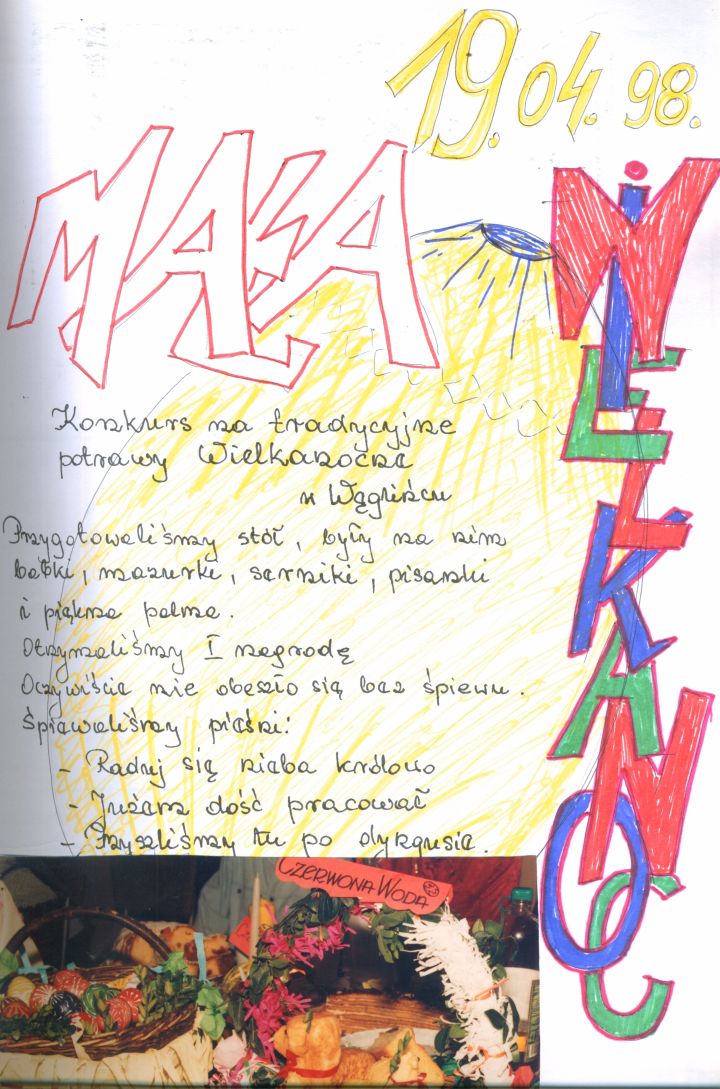 19.04.98.
MAŁA
WIELKANOC
Konkurs na tradycyjne
potrawy Wielkanocne
w Węglińcu
Przygotowaliśmy stół, były na nim
babki, mazurki, serniki, pisanki
i piękna palma.
Otrzymaliśmy I nagrodę
Oczywiście nie obeszło się bez śpiewu.
Śpiewaliśmy pieśni:
- Raduj się nieba królowo
- Jużem dość pracował
- Przyszliśmy tu po dyngusie.
CZERWONA WODA